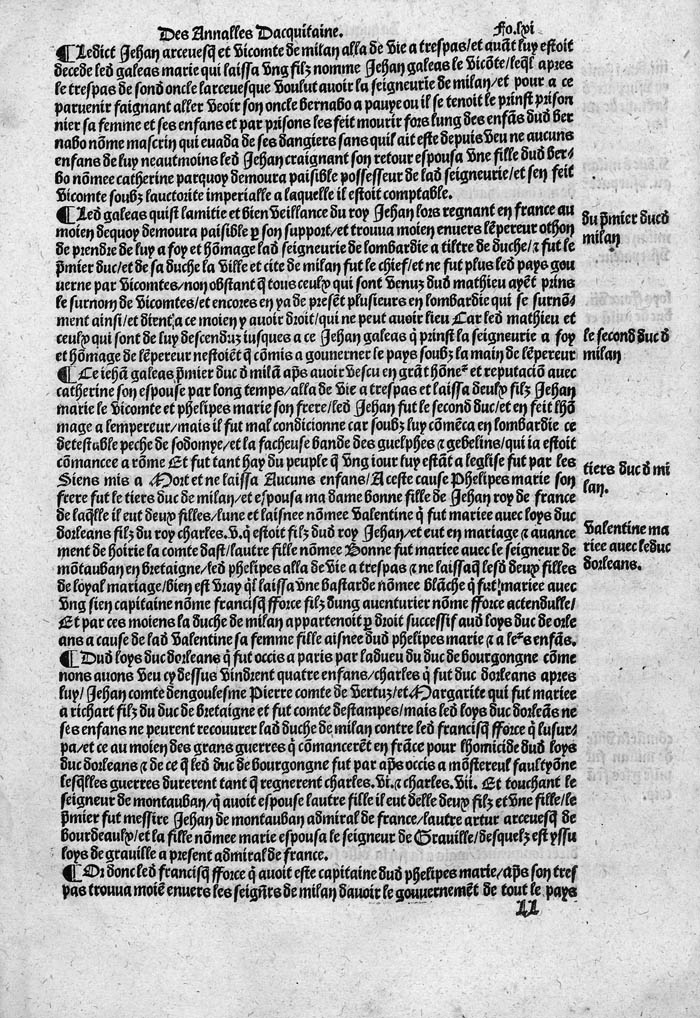 Des Annalles Dacquitaine. Fo.lxi
¶Ledict Jehan arceuesq̃ et Vicomte de milan alla de vie a trespas/et auãt luy estoit
decede led galeas marie qui laissa vng filz nomme Jehan galeas le Vicõte/leq̃l apres
le trespas de sond oncle larceuesque voulut auoir la seigneurie de milan/et pour a ce
paruenir faignant aller veoir son oncle bernabo a pauye ou il se tenoit le prinst prison
nier sa femme et ses enfans et par prisons les feit mourir fors lung des enfãs dud ber
nabo nõme mascrin qui euada de ses dangiers sans quil ait este depuis veu ne aucuns
enfans de luy neautmoins led Jehan craignant son retour espousa vne fille dud ber-
bo nõmee catherine parquoy demoura paisible possesseur de lad seigneurie/et sen feit
Vicomte soubz lauctorite imperialle a laquelle il estoit comptable.
¶Led galeas quist lamitie et bien veillance du roy Jehan lors regnant en france au
moien dequoy demoura paisible p̱ son support/et trouua moien enuers lẽpereur othon
de prendre de luy a foy et hõmage lad seigneurie de lombardie a tiltre de duche/⁊ fut le
p̃mier duc/et de sa duche la ville et cite de milan fut le chief/et ne fut plus led pays gou
uerne par Vicomtes/non obstant q̃ tous ceulx qui sont venuz dud mathieu ayẽt prins
le surnom de Vicomtes/et encores en ya de presẽt plusieurs en lombardie qui se surnõ-
ment ainsi/et dirnt a ce moien y auoir droit/qui ne peut auoir lieu Car led mathieu et
ceulx qui sont de luy descenduz iusques a ce Jehan galeas q̃ prinst la seigneurie a foy
et hõmage de lẽpereur nestoiẽt q̃ cõmis a gouuerner le pays soubz la main de lẽpereur
¶Ce iehã galeas p̃mier duc d milã ap̃s auoir vescu en grãt hõneʳ et reputaciõ auec
catherine son espouse par long temps/alla de vie a trespas et laissa deulx filz Jehan
marie le Vicomte et phelipes marie son frere/led Jehan fut le second duc/et en feit lhõ
mage a lempereur/mais il fut mal condicionne car soubz luy cõmẽca en lombardie ce
detestable peche de sodomye/et la facheuse bande des guelphes ⁊ gebelins/qui ia estoit
cõmancee a rõme Et fut tant hay du peuple q̃ vng iour luy estãt a leglise fut par les
Siens mis a Mort et ne laissa Aucuns enfans/A ceste cause Phelipes marie son
frere fut le tiers duc de milan/et espousa ma dame bonne fille de Jehan roy de france
de laq̃lle il eut deux filles/lune et laisnee nõmee Valentine q̃ fut mariee auec loys duc
dorleans filz du roy charles.v.q̃ estoit filz dud roy Jehan/et eut en mariage ⁊ auance
ment de hoirie la comte dast/lautre fille nõmee Bonne fut mariee auec le seigneur de
mõtauban en bretaigne/led phelipes alla de vie a trespas ⁊ ne laissaq̃ lesd deux filles
de loyal mariage/bien est vray q̃l laissa vne bastarde nõmee blãche q̃ fut mariee auec
vng sien capitaine nõme francisq̃ fforce filz dung auenturier nõme fforce actendulle/
Et par ces moiens la duche de milan appartenoit p̱ droit successif aud loys duc de orle
ans a cause de lad Valentine sa femme fille aisnee dud phelipes marie ⁊ a leʳs enfãs.
¶Dud loys duc dorleans q̃ fut occis a paris par ladueu du duc de bourgongne cõme
nous auons veu cy dessus vindrent quatre enfans/charles q̃ fut duc dorleans apres
luy/Jehan comte dengoulesme Pierre comte de vertuz/et Margarite qui fut mariee
a richart filz du duc de bretaigne et fut comte destampes/mais led loys duc dorleãs ne
ses enfans ne peurent recouurer lad duche de milan contre led francisq̃ fforce q̃ lusur-
pa/et ce au moien des grans guerres q̃ cõmancerẽt en frãce pour lhomicide dud loys
duc dorleans ⁊ de ce q̃ led duc de bourgongne fut par ap̃s occis a mõstereul faultyõne
lesq̃lles guerres durerent tant q̃ regnerent charles.vi.⁊ charles.vii. Et touchant le
seigneur de montauban/q̃ auoit espouse lautre fille il eut delle deux filz et vne fille/le
p̃mier fut messire Jehan de montauban admiral de france/lautre artur arceuesq̃ de
bourdeaulx/et la fille nõmee marie espousa le seigneur de Grauille/desquelz est yssu
loys de grauille a present admiral de france.
¶Or donc led francisq̃ fforce q̃ auoit este capitaine dud phelipes marie/ap̃s son tres
pas trouua moiẽ enuers les seignr̃s de milan dauoir le gouuernemẽt de tout le pays
LL
du p̃mier duc d
milan
le second duc d
milan
tiers duc d mi
lan.
Valentine ma
riee auec leduc
dorleans.